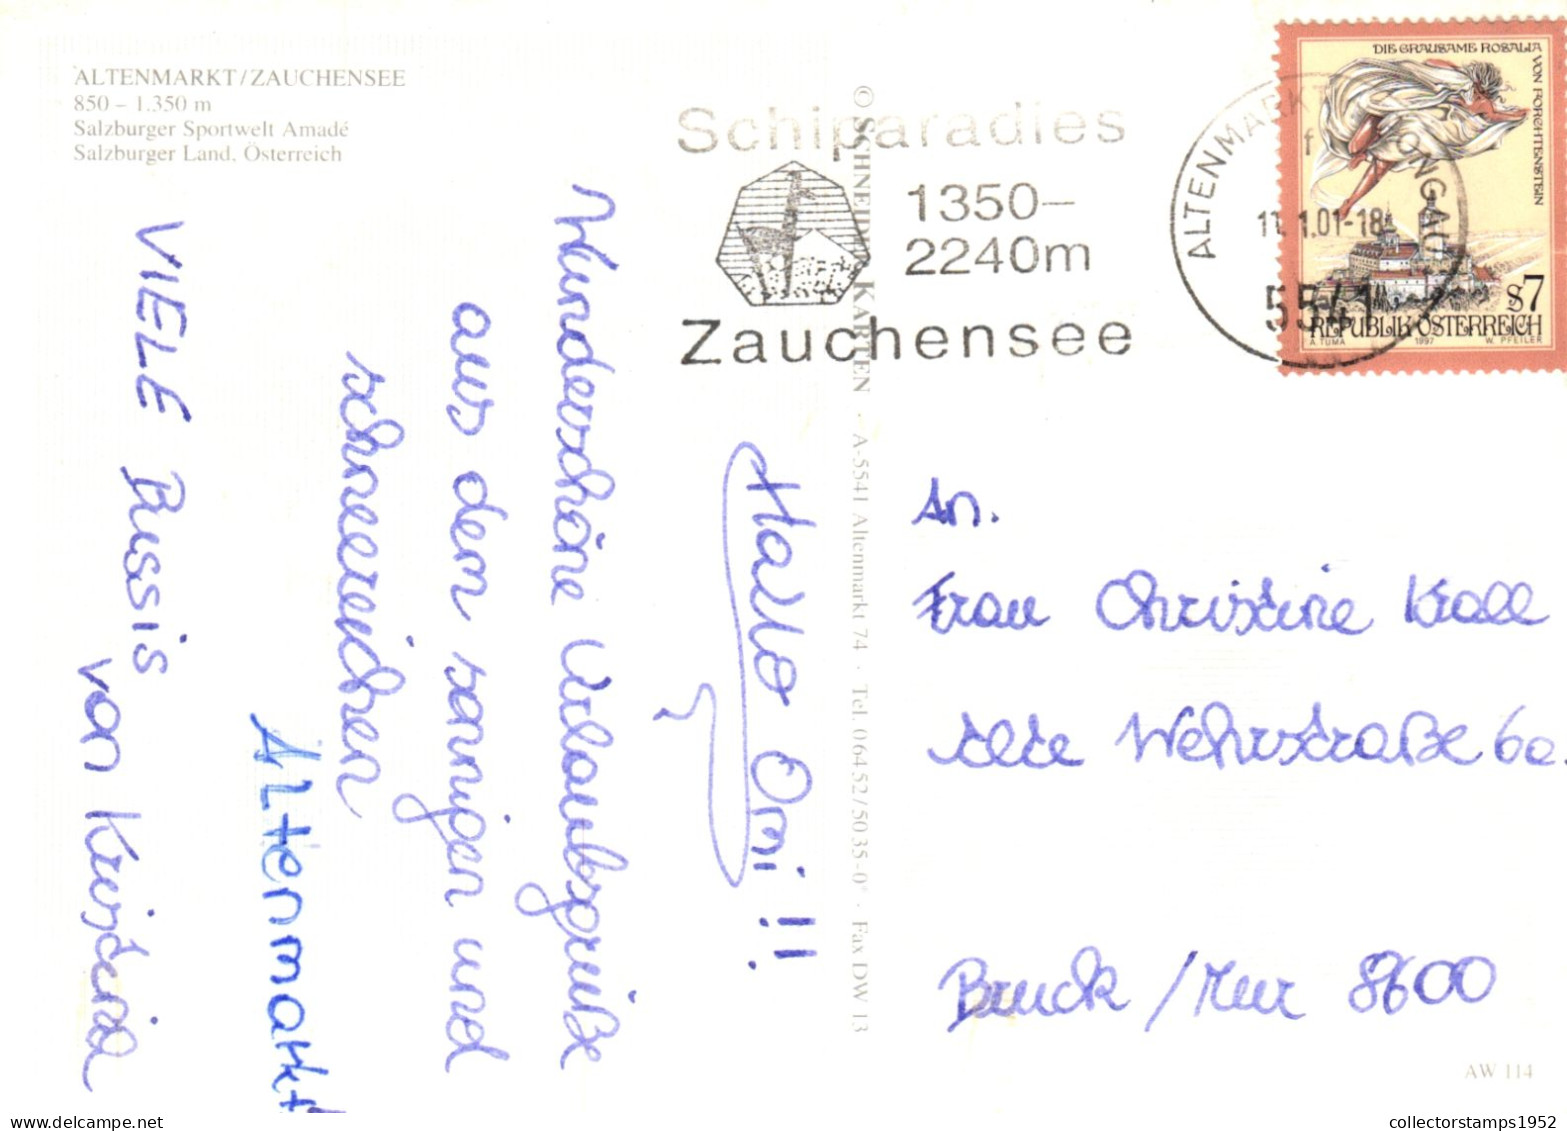 ALTENMARKT/ZAUCHENSEE
850 – 1.350 m
Salzburger Sportwelt Amadé
Salzburger Land, Österreich
Schiparadies
1350–
2240m
Zauchensee
ALTENMARKT PONGAU
1.01-18
5541
DIE GRAUSAME ROSALIA
VON FORCHTENSTEIN
S7
REPUBLIK ÖSTERREICH
A. TUMA 1997 W. PFEILER
© SCHNEIDER KARTEN · A-5541 Altenmarkt 74 · Tel. 06452/5035-0 · Fax DW 13
Hallo Omi!!
Wunderschöne Urlaubsgrüße
aus dem sonnigen und
schneereichen
Altenmarkt
VIELE Bussis
von Kristina
An.
Frau Christine Kroll
Alte Wehrstraße 6a.
Bruck /Mur 8600
AW 114
collectorstamps1952